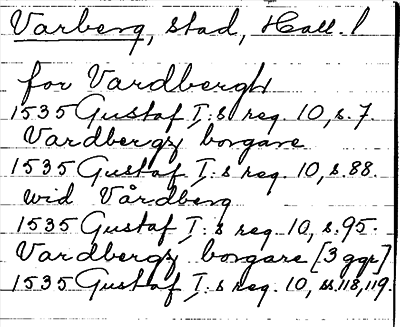 Varberg, stad, Hall. l
for Vardbergh
1535 Gustaf I:s reg. 10, s. 7.
Vardbergz borgare
1535 Gustaf I:s reg. 10, s. 88.
wid Vårdberg
1535 Gustaf I:s reg. 10, s. 95.
Vardbergz borgare [3 ggr]
1535 Gustaf I:s reg. 10, ss 118, 119.